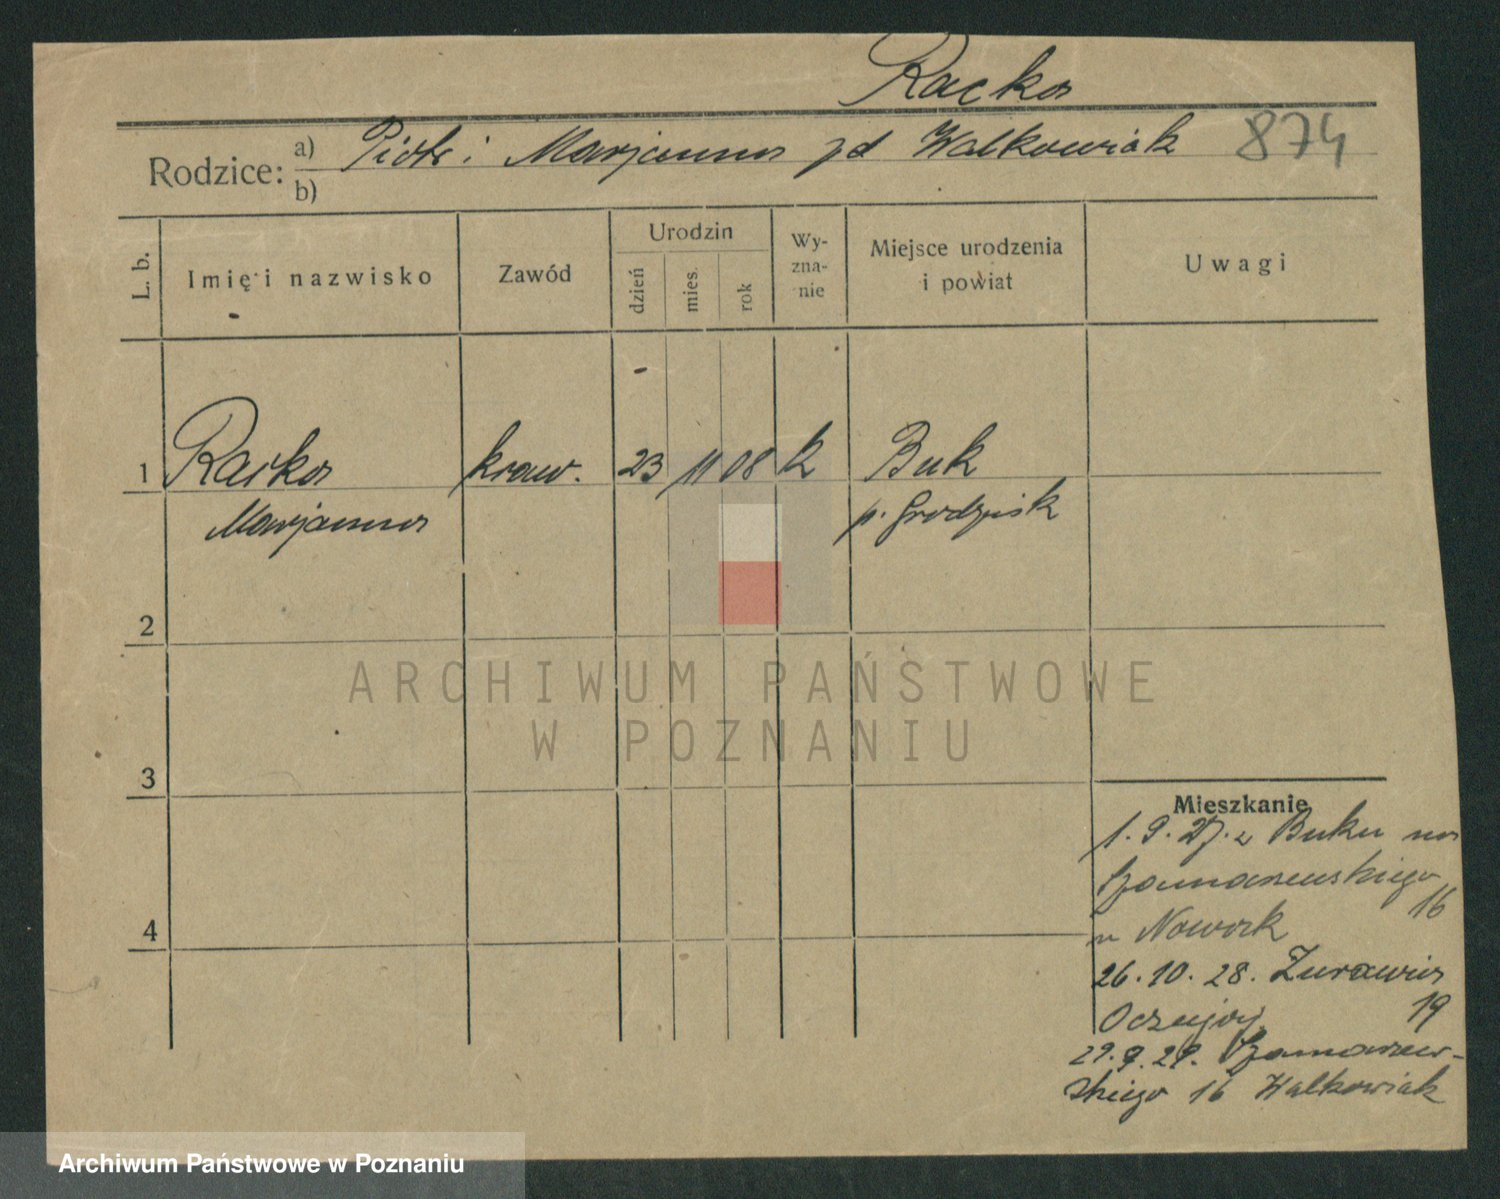 Racka
Rodzice: a) Piotr i Marjanna zd Walkowiak 874
b)
L. b. Imię i nazwisko Zawód Urodzin dzień mies. rok Wy-zna-nie Miejsce urodzenia i powiat Uwagi
1 Racka kraw. 23 11 08 k Buk
Marjanna p. Grodzisk
2
ARCHIWUM PAŃSTWOWE
W POZNANIU
3
Mieszkanie
1. 9. 27. z Buku na
Szamarzewskiego 16
4
26. 10. 28. Żurawia 19
29. 9. 29. Szamarzew-
skiego 16 Walkowiak
Archiwum Państwowe w Poznaniu